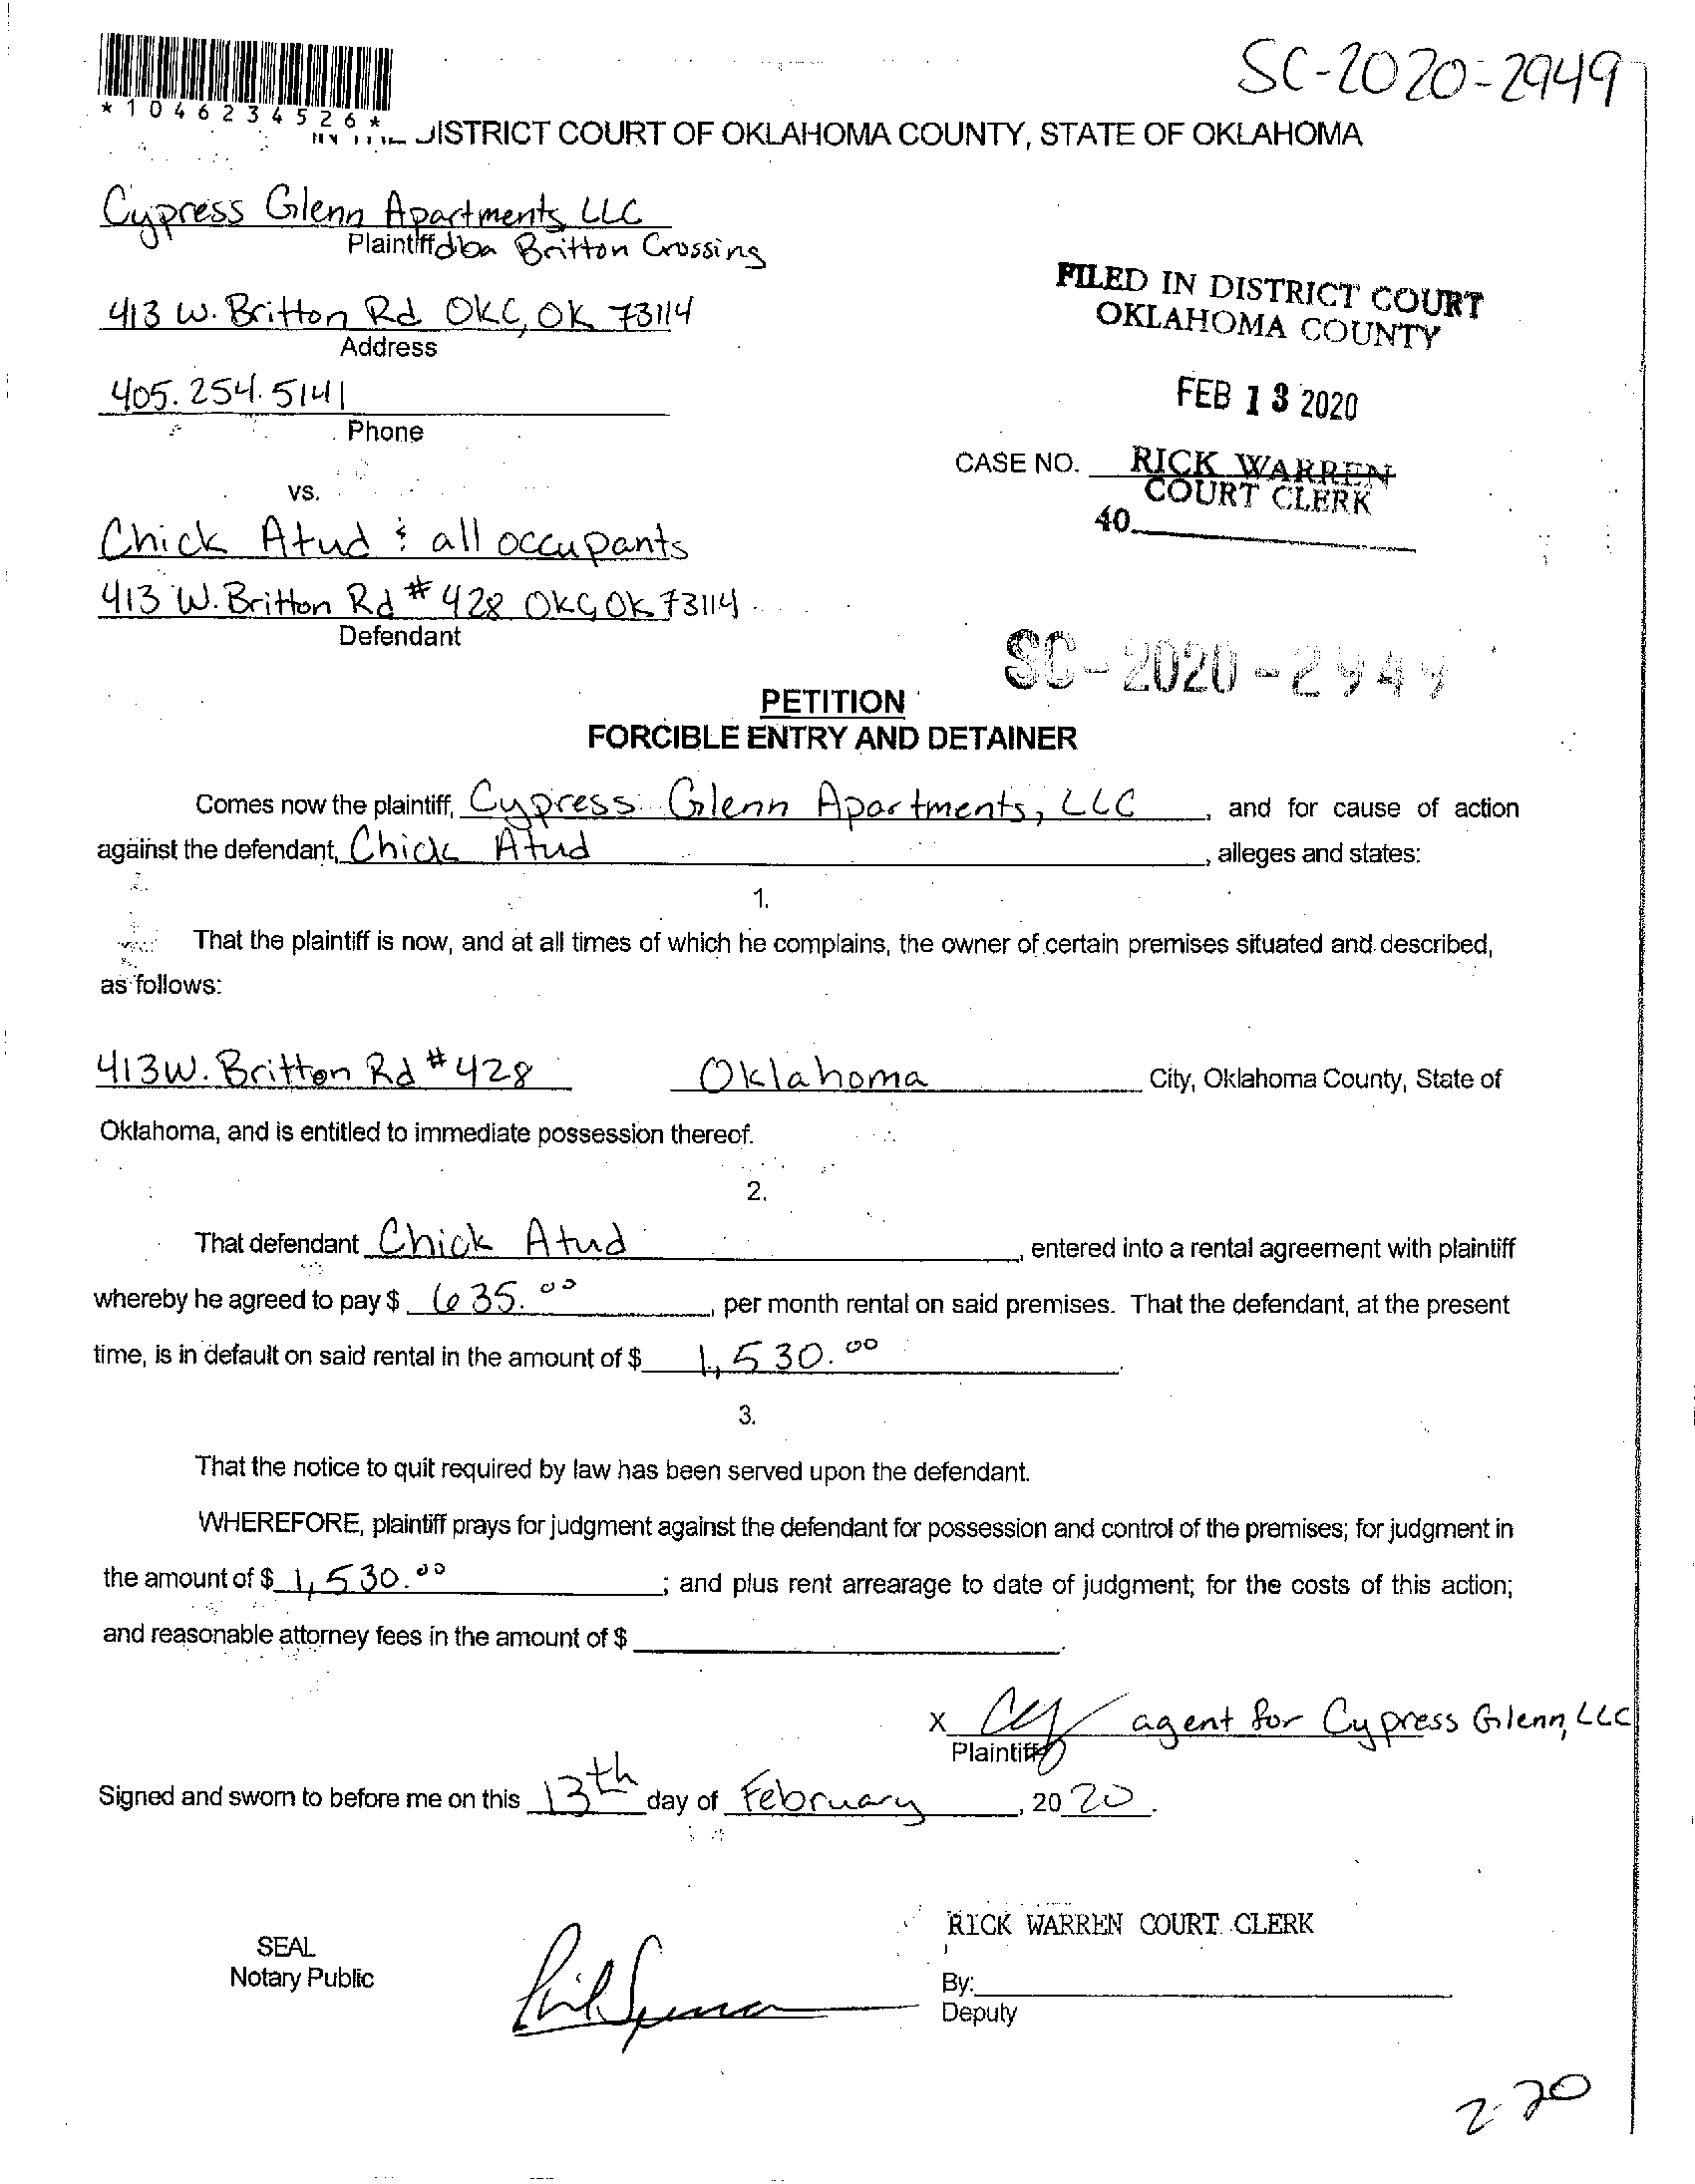 SC-2020-2949
*1046234526*
DISTRICT COURT OF OKLAHOMA COUNTY, STATE OF OKLAHOMA
Cypress Glenn Apartments LLC
Plaintiff dba Britton Crossing
413 W. Britton Rd OKC, OK 73114
Address
FILED IN DISTRICT COURT
OKLAHOMA COUNTY
405.254.5141
Phone
FEB 13 2020
CASE NO. RICK WARREN
COURT CLERK
vs.
40
Chick Atud & all occupants
413 W. Britton Rd #428 OKC, OK 73114
Defendant
SC-2020-2949
PETITION
FORCIBLE ENTRY AND DETAINER
Comes now the plaintiff, Cypress Glenn Apartments, LLC, and for cause of action
against the defendant, Chick Atud, alleges and states:
1.
That the plaintiff is now, and at all times of which he complains, the owner of certain premises situated and described,
as follows:
413 W. Britton Rd #428 Oklahoma City, Oklahoma County, State of
Oklahoma, and is entitled to immediate possession thereof.
2.
That defendant Chick Atud, entered into a rental agreement with plaintiff
whereby he agreed to pay $ 635.00, per month rental on said premises. That the defendant, at the present
time, is in default on said rental in the amount of $ 1,530.00.
3.
That the notice to quit required by law has been served upon the defendant.
WHEREFORE, plaintiff prays for judgment against the defendant for possession and control of the premises; for judgment in
the amount of $ 1,530.00; and plus rent arrearage to date of judgment; for the costs of this action;
and reasonable attorney fees in the amount of $ .
X agent for Cypress Glenn, LLC
Plaintiff
Signed and sworn to before me on this 13th day of February, 2020.
RICK WARREN COURT CLERK
SEAL
Notary Public
By:
Deputy
2-20